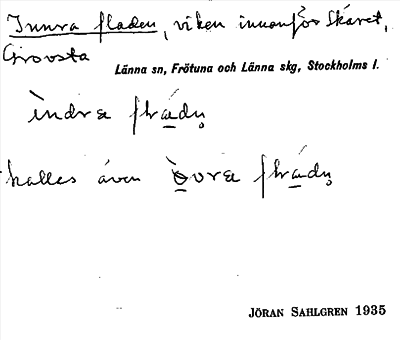 Innra fladen, viken innanför Skäret,
Grovsta
Länna sn, Frötuna och Länna skg, Stockholms l.
ìndra flrädn̥
kallas även òvra flrädn̥
JÖRAN SAHLGREN 1935